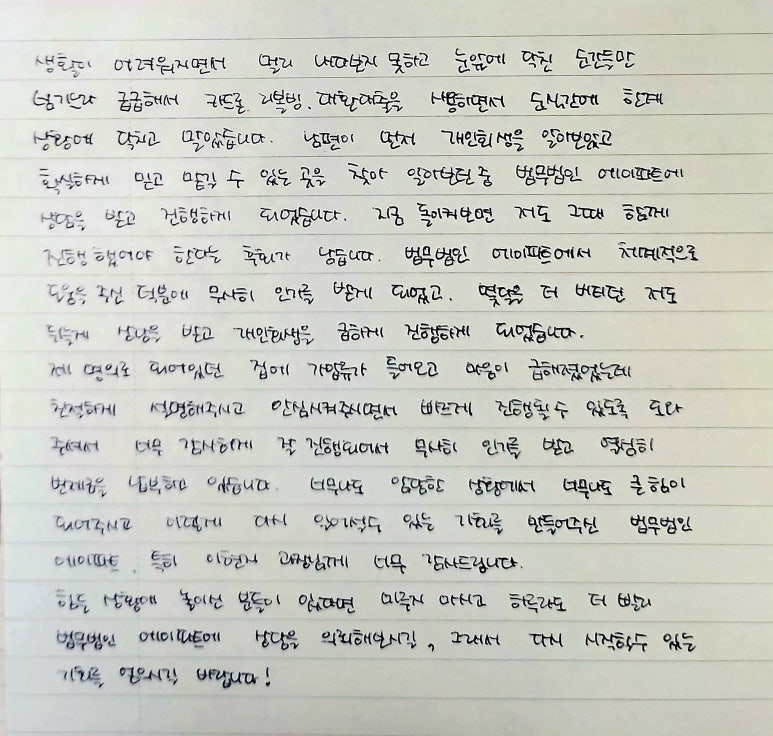 생활이 어려워지면서 멀리 내다보지 못하고 눈앞에 닥친 순간들만
넘기느라 급급해서 카드론, 리볼빙, 대환대출을 사용하면서 순식간에 한계
상황에 닥치고 말았습니다. 남편이 먼저 개인회생을 알아보았고
확실하게 믿고 맡길 수 있는 곳을 찾아 알아보던 중 법무법인 에이파트에
상담을 받고 진행하게 되었습니다. 지금 돌이켜보면 저도 그때 함께
진행했어야 한다는 후회가 남습니다. 법무법인 에이파트에서 체계적으로
도움을 주신 덕분에 무사히 인가를 받게 되었고, 몇달을 더 버티던 저도
뒤늦게 상담을 받고 개인회생을 급하게 진행하게 되었습니다.
제 명의로 되어있던 집에 가압류가 들어오고 마음이 급해졌었는데
친절하게 설명해주시고 안심시켜주시면서 빠르게 진행될수 있도록 도와
주셔서 너무 감사하게 잘 진행되어서 무사히 인가를 받고 열심히
변제금을 납부하고 있습니다. 너무나도 암담한 상황에서 너무나도 큰 힘이
되어주시고 이렇게 다시 일어설수 있는 기회를 만들어주신 법무법인
에이파트, 특히 이현지 과장님께 너무 감사드립니다.
힘든 상황에 놓이신 분들이 있다면 미루지 마시고 하루라도 더 빨리
법무법인 에이파트에 상담을 의뢰해보시길, 그래서 다시 시작할수 있는
기회를 얻으시길 바랍니다!